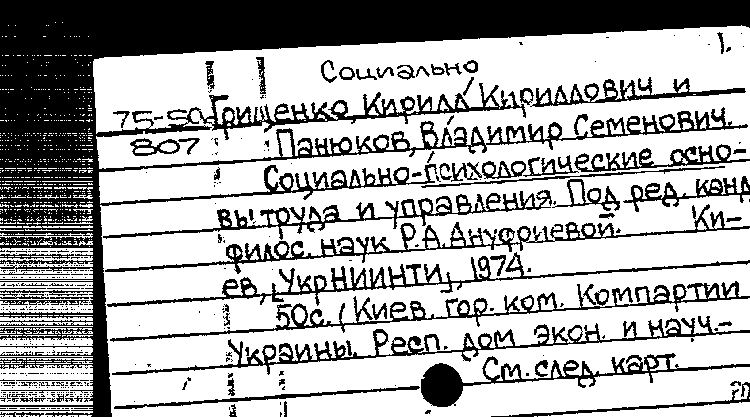 1.
Социально
75-50 Грищенко, Кирилл Кириллович и
807 Панюков, Владимир Семенович.
Социально-психологические осно-
вы труда и управления. Под ред. канд
филос. наук Р.А. Ануфриевой. Ки-
ев, [УкрНИИНТИ], 1974.
50с. (Киев. гор. ком. Компартии
Украины. Респ. дом экон. и науч.-
См. след. карт.